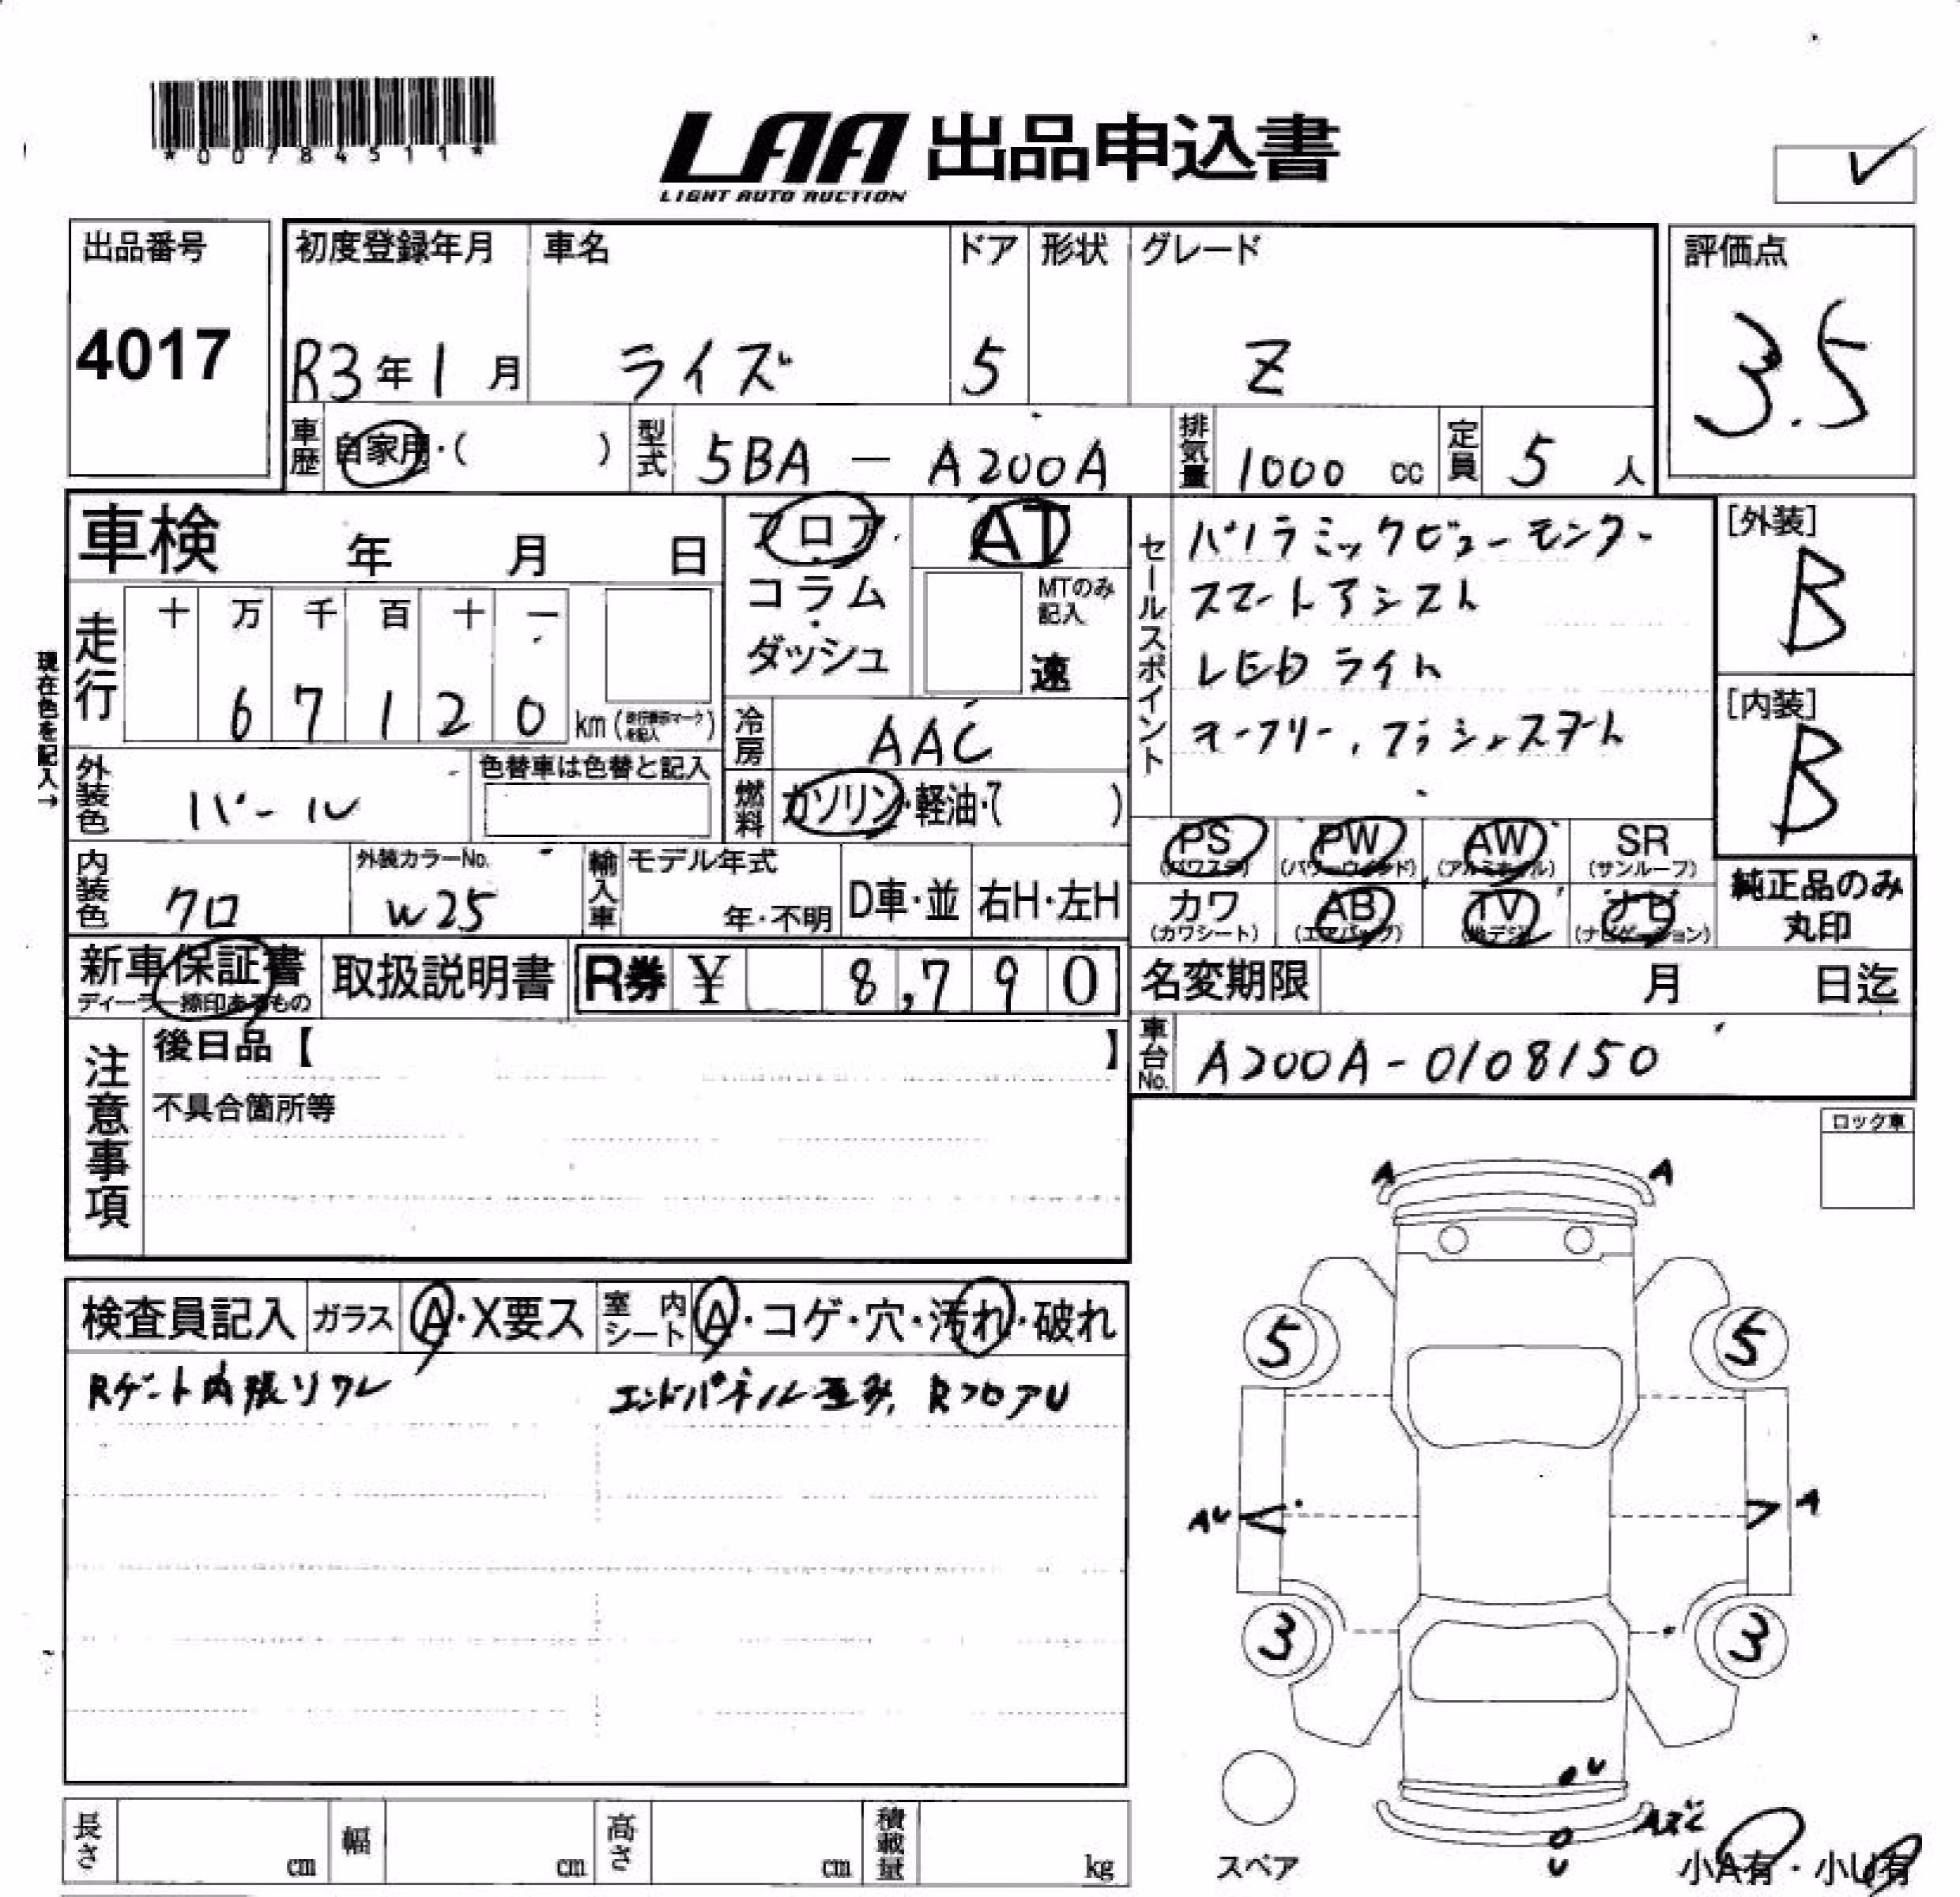 *00784511*
LAA 出品申込書
LIGHT AUTO AUCTION
出品番号
4017
初度登録年月
R3年1月
車名
ライズ
ドア
5
形状
グレード
Z
評価点
3.5
車歴 自家用・( )
型式 5BA - A200A
排気量 1000 cc
定員 5 人
車検 年 月 日
フロア
コラム
ダッシュ
AT
MTのみ記入
速
セールスポイント
パノラミックビューモニター
スマートアシスト
LEDライト
キーフリー、プッシュスタート
[外装]
B
[内装]
B
現在色を記入→
走行 十 万 千 百 十 一
6 7 1 2 0 km (走行表示マークを記入)
冷房 AAC
外装色 パール
色替車は色替と記入
燃料 ガソリン・軽油・( )
PS (パワステ) PW (パワーウインド) AW (アルミホイル) SR (サンルーフ)
カワ (カワシート) AB (エアバッグ) TV (地デジ) ナビ (ナビゲーション)
純正品のみ丸印
内装色 クロ
外装カラーNo. W25
輸入車 モデル年式 年・不明 D車・並 右H・左H
新車保証書
ディーラー捺印あるもの
取扱説明書
R券 ¥ 8,790
名変期限 月 日迄
車台No. A200A-0108150
注意事項
後日品【 】
不具合箇所等
ロック車
検査員記入 ガラス A・X要ス 室内シート A・コゲ・穴・汚れ・破れ
Rゲート内張りワレ エンドパネル歪み、RフロアU
A A
5 5
AU A
3 3
U
U
スペア
小A有・小U有
長さ cm 幅 cm 高さ cm 積載量 kg